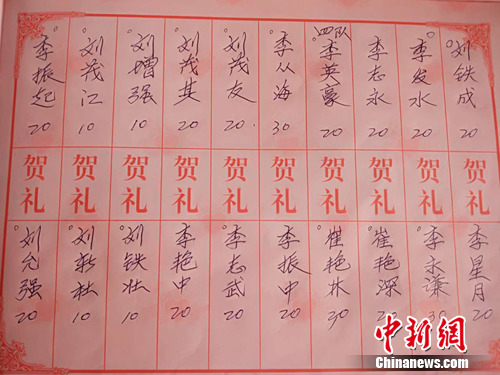 刘铁成 20
李发水 20
李志永 20
四队 李英豪 20
李从海 30
刘茂友 20.
刘茂其 20
刘增强 10
刘茂江 10
李振起 20
贺礼 贺礼 贺礼 贺礼 贺礼 贺礼 贺礼 贺礼 贺礼 贺礼
李星月 20
李永濂 30
崔艳深
崔艳林 30
李振中 20
李志武 20
李艳中 20
刘铁壮 10
刘新壮 10
刘允强 20
中新网
Chinanews.com